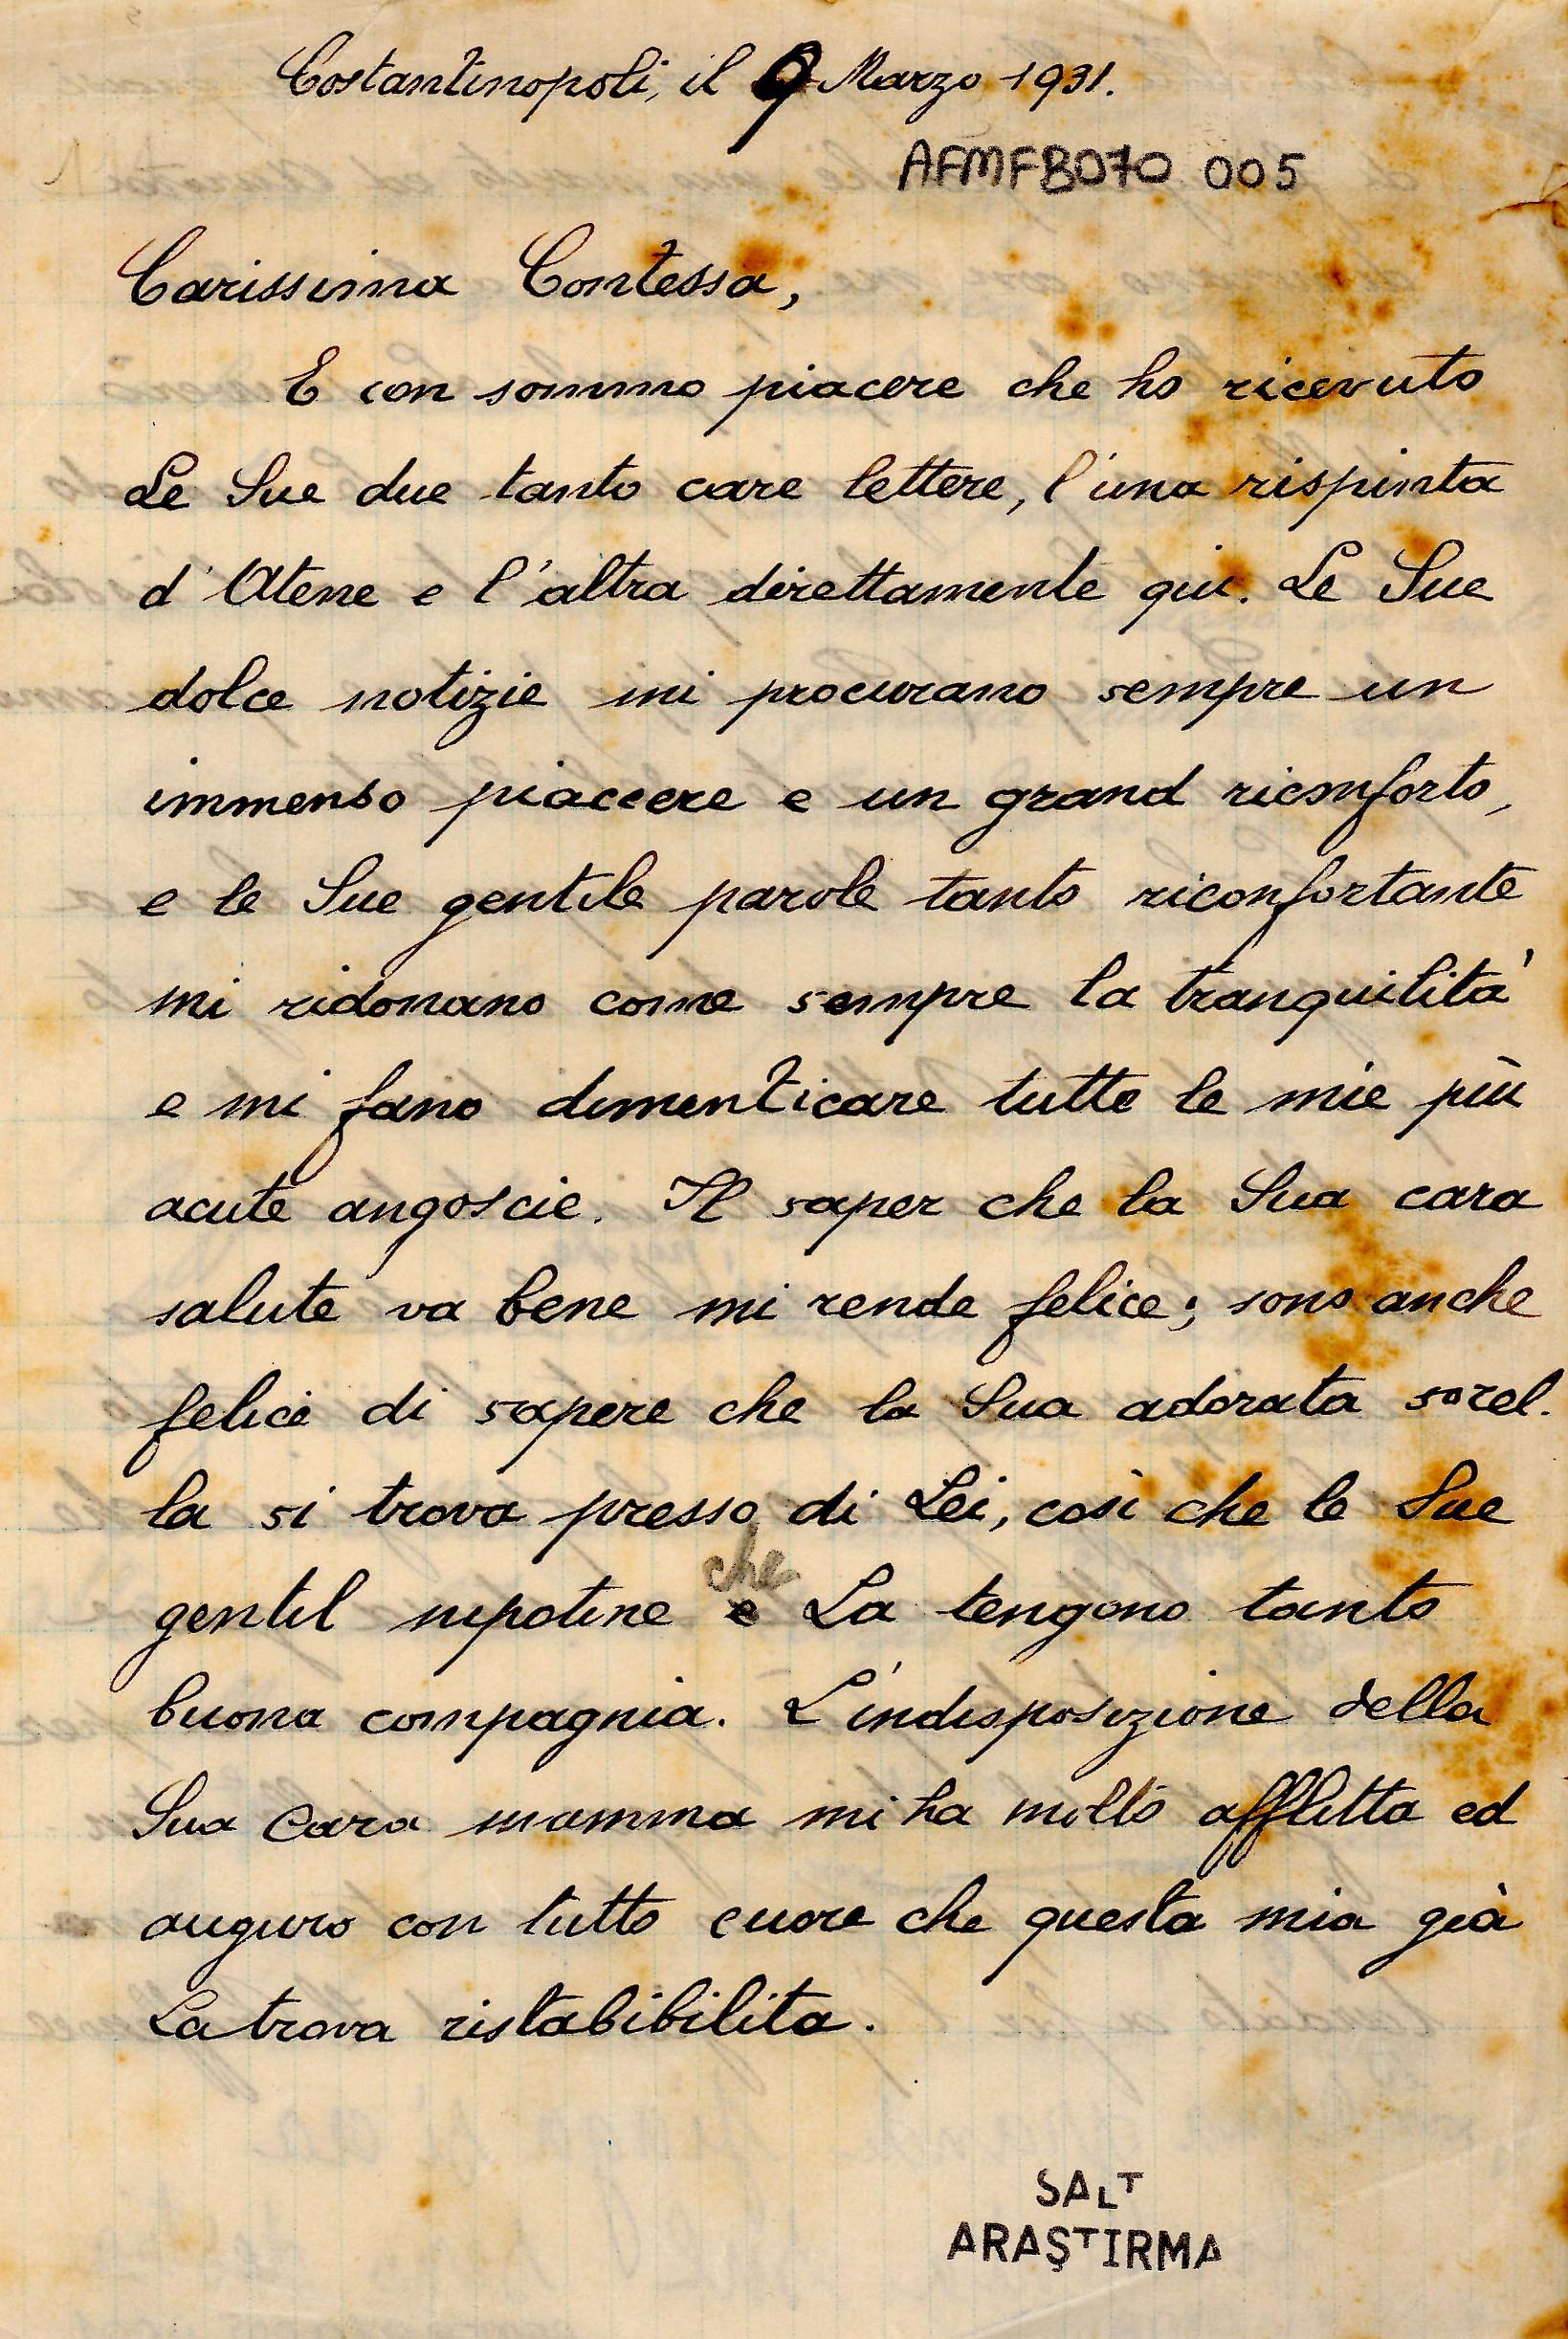 Costantinopoli, il 9 Marzo 1931.
AFMFB070 005
Carissima Contessa,
E con sommo piacere che ho ricevuto
Le Sue due tanto care lettere, l'una rispinta
d'Atene e l'altra direttamente qui. Le Sue
dolce notizie mi procurano sempre un
immenso piaccere e un grand riconforto,
e le Sue gentile parole tanto riconfortante
mi ridonano come sempre la tranquilità
e mi fano dimenticare tutte le mie più
acute angoscie. Il saper che la Sua cara
salute va bene mi rende felice; sono anche
felice di sapere che la Sua adorata sorel.
la si trova presso di Lei, così che le Sue
che
gentil nipotine e La tengono tanto
buona compagnia. L'indisposizione della
Sua cara mamma mi ha molto afflitta ed
auguro con tutto cuore che questa mia già
La trova ristabibilita.
SALT
ARAŞTIRMA